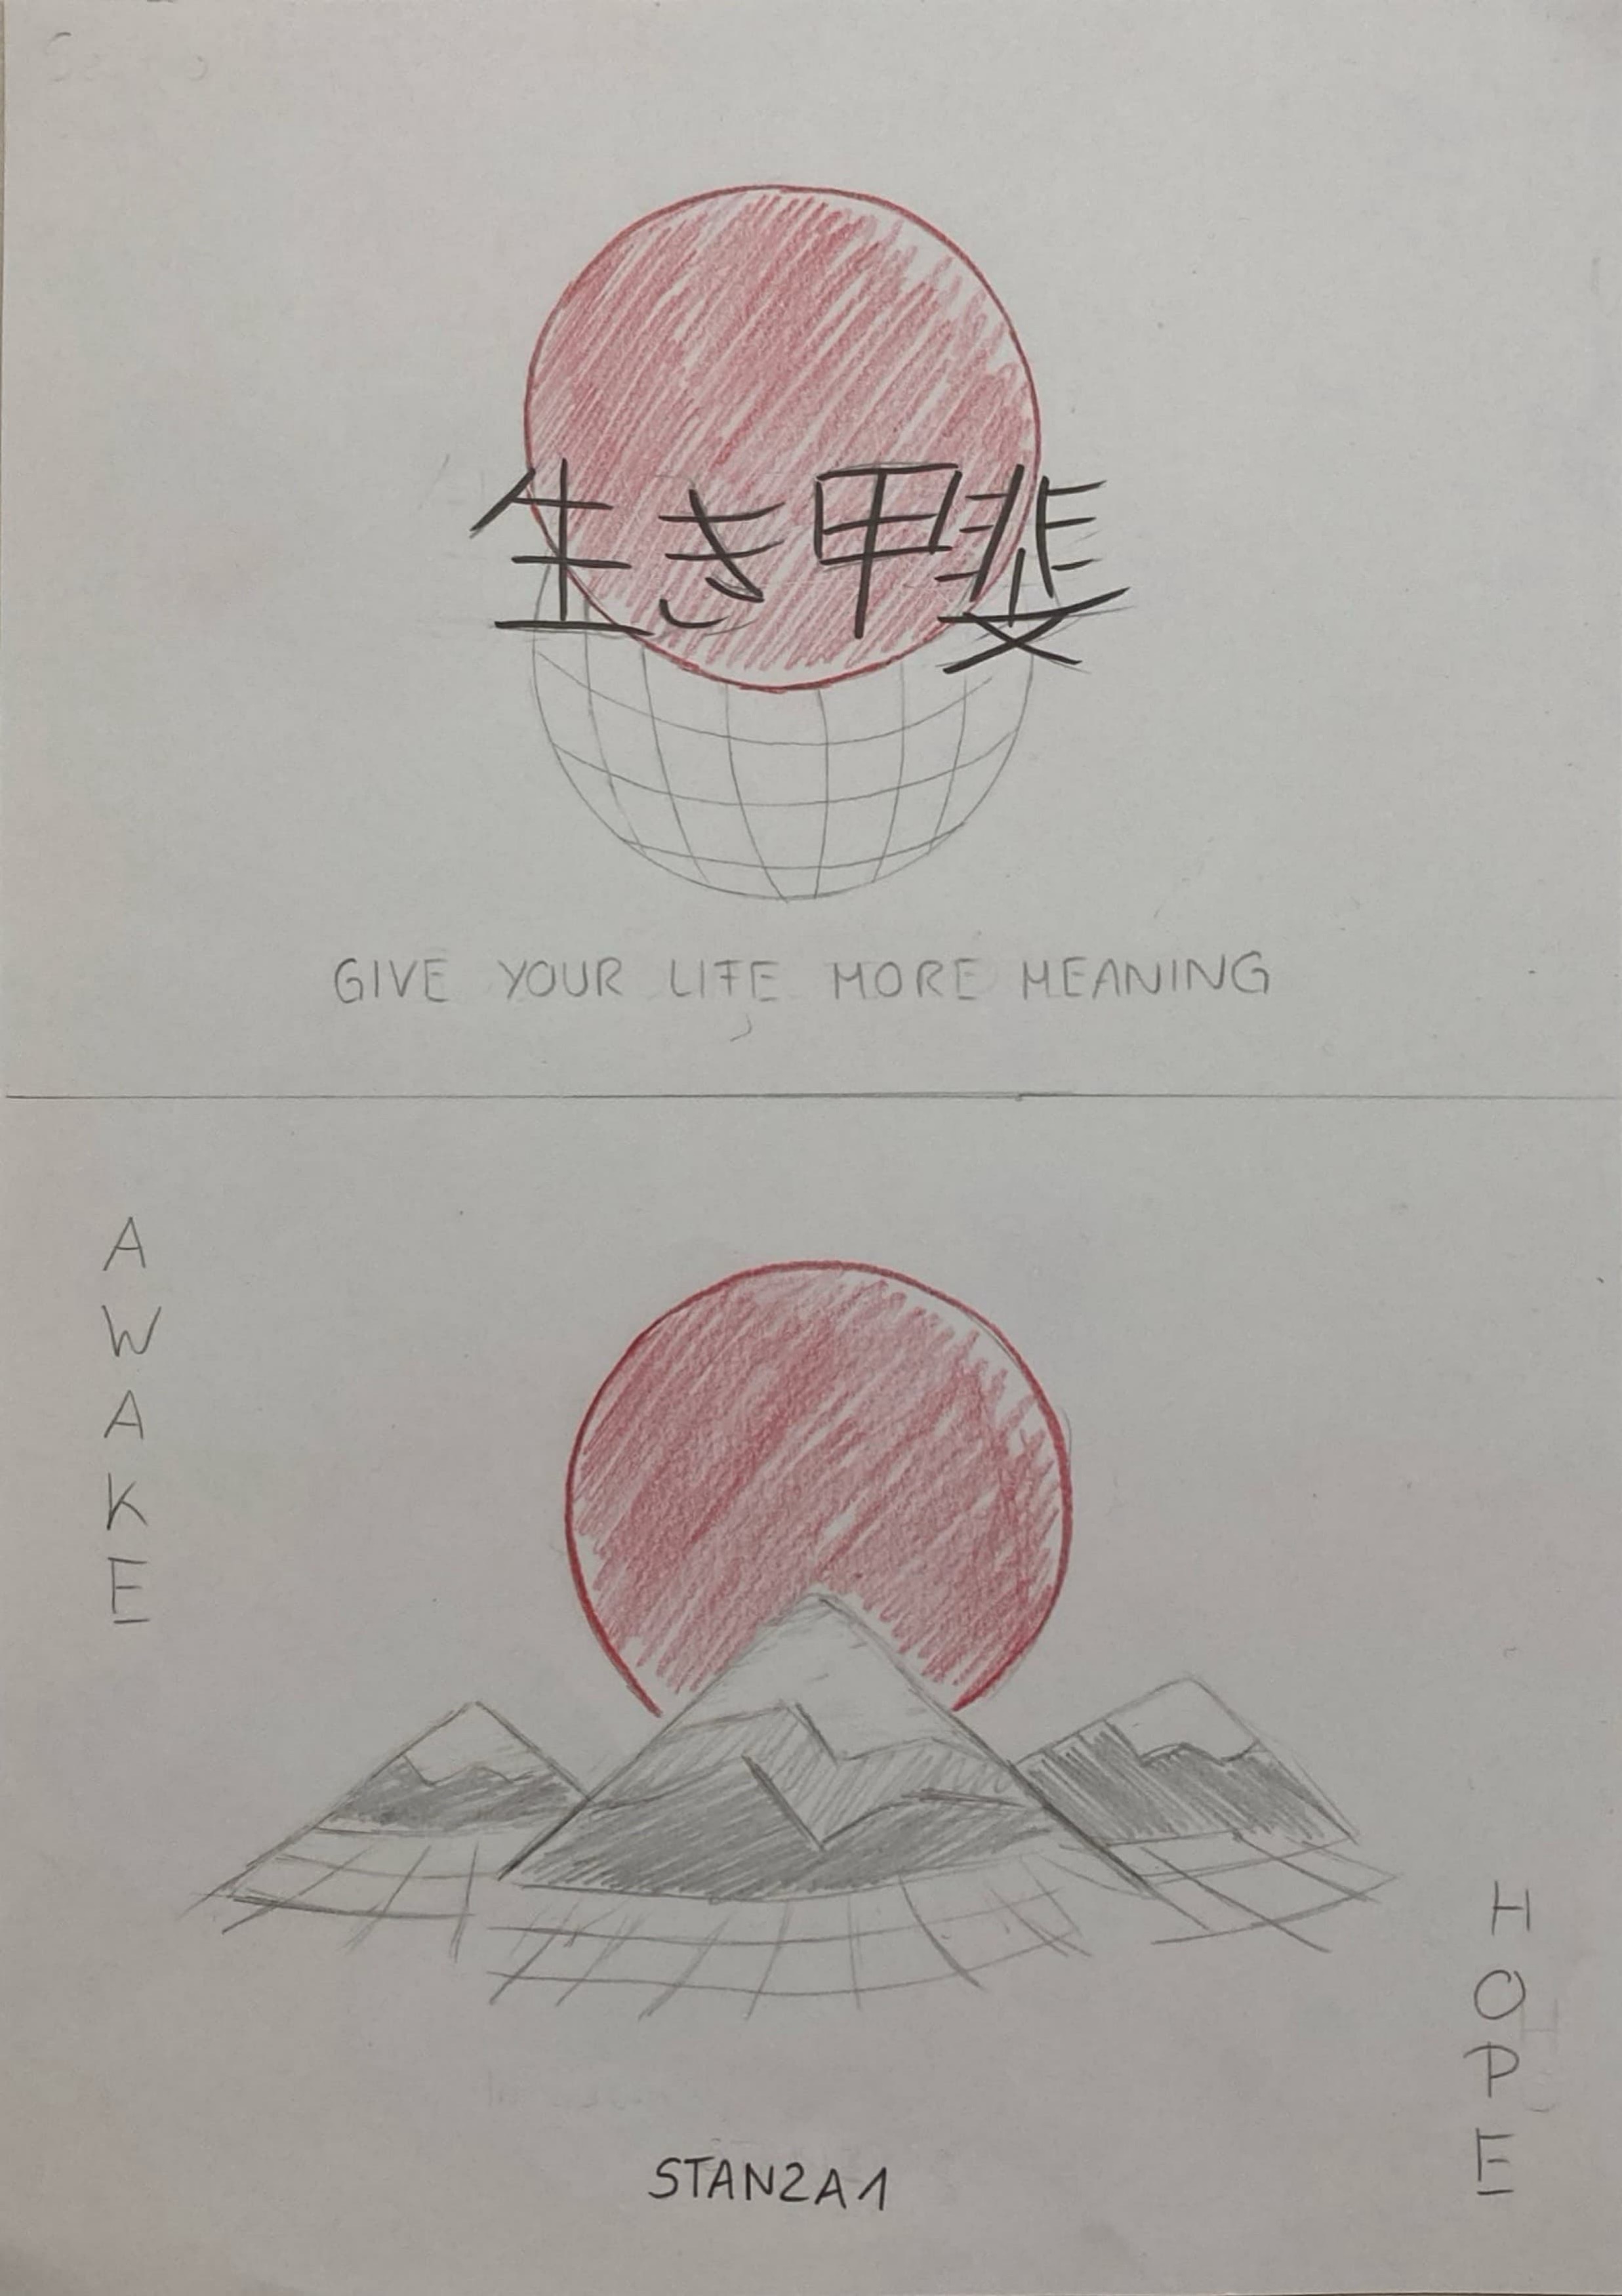 生き甲斐
GIVE YOUR LIFE MORE MEANING
AWAKE
HOPE
STANZA1